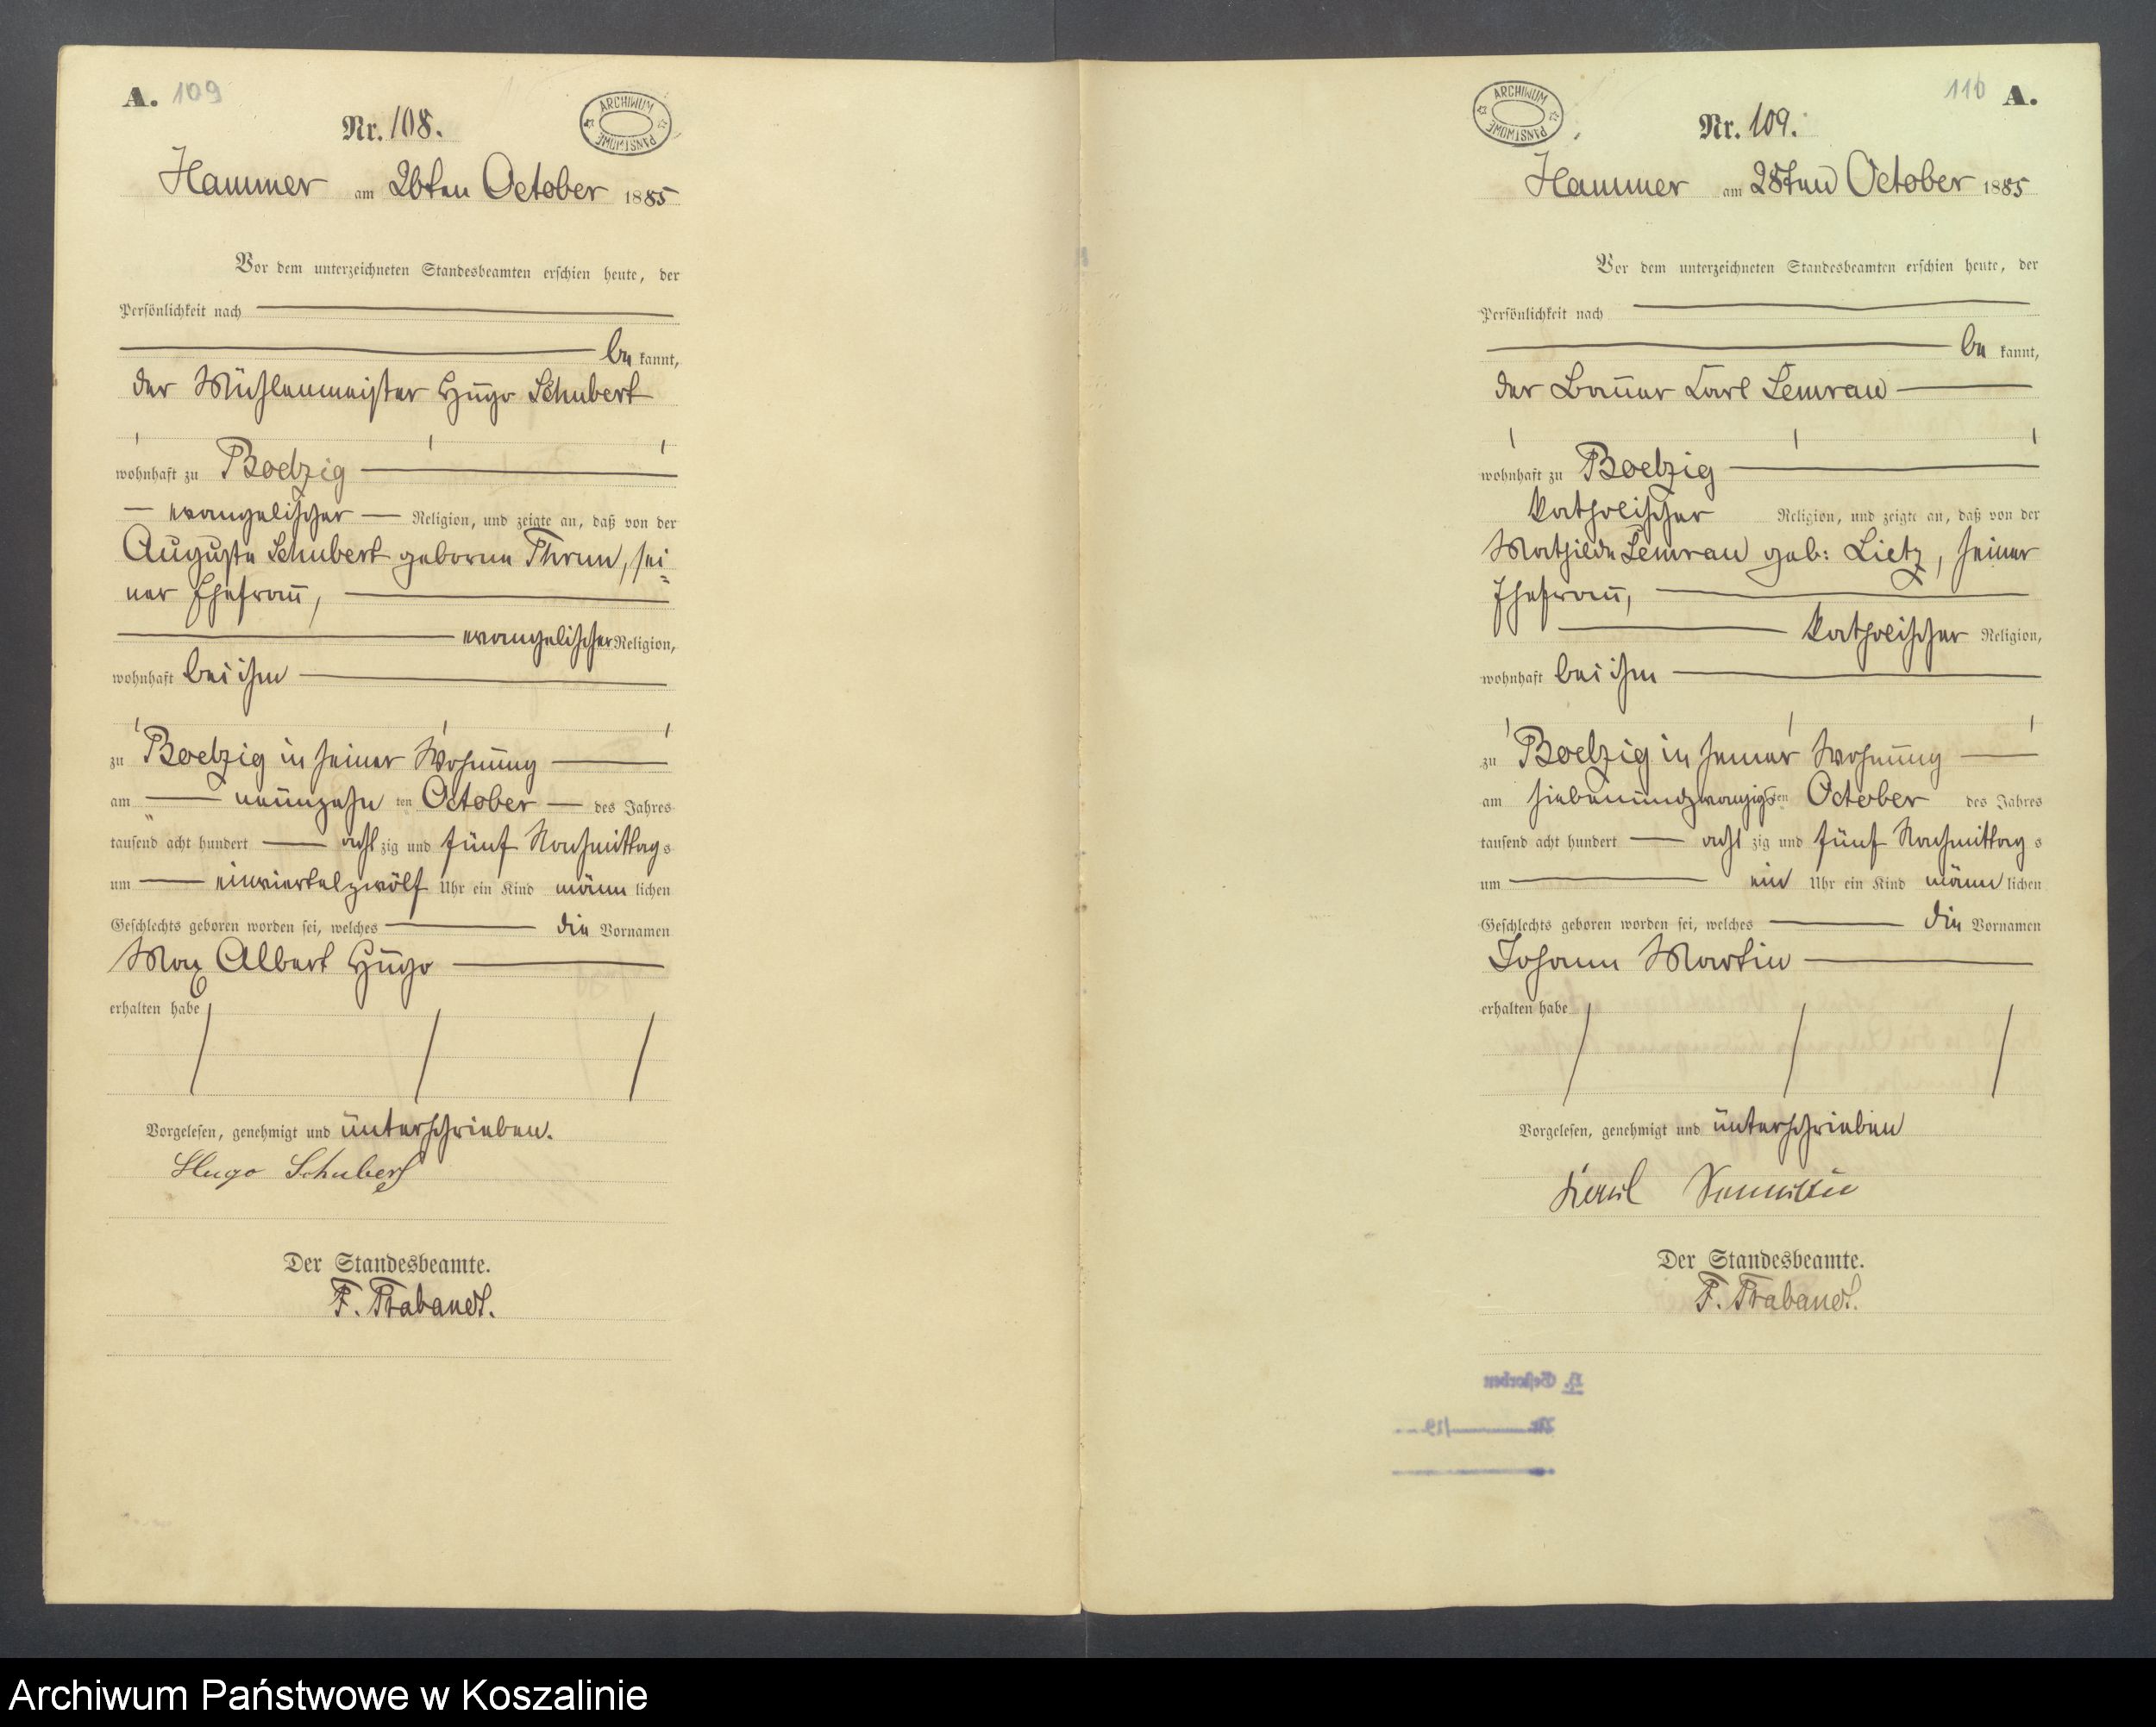 A. 109
ARCHIWUM PAŃSTWOWE
Nr. 108.
Hammer am 26ten October 1885
Vor dem unterzeichneten Standesbeamten erschien heute, der
Persönlichkeit nach
be kannt,
der Mühlenmeister Hugo Schubert
wohnhaft zu Boelzig
evangelischer Religion, und zeigte an, daß von der
Auguste Schubert geborne Thrun, sei=
ner Ehefrau,
evangelischer Religion,
wohnhaft bei ihm
zu Boelzig in seiner Wohnung
am neunzehn ten October des Jahres
tausend acht hundert acht zig und fünf Nachmittag s
um einviertelzwölf Uhr ein Kind männ lichen
Geschlechts geboren worden sei, welches die Vornamen
Max Albert Hugo
erhalten habe
Vorgelesen, genehmigt und unterschrieben.
Hugo Schubert
Der Standesbeamte.
F. Trabandt.
110 A.
ARCHIWUM PAŃSTWOWE
Nr. 109.
Hammer am 28ten October 1885
Vor dem unterzeichneten Standesbeamten erschien heute, der
Persönlichkeit nach
be kannt,
der Bauer Carl Semrau
wohnhaft zu Boelzig
katholischer Religion, und zeigte an, daß von der
Mathilde Semrau geb: Lietz, seiner
Ehefrau,
katholischer Religion,
wohnhaft bei ihm
zu Boelzig in seiner Wohnung
am siebenundzwanzigsten October des Jahres
tausend acht hundert acht zig und fünf Nachmittag s
um ein Uhr ein Kind männ lichen
Geschlechts geboren worden sei, welches die Vornamen
Johann Martin
erhalten habe
Vorgelesen, genehmigt und unterschrieben
Der Standesbeamte.
F. Trabandt.
Archiwum Państwowe w Koszalinie